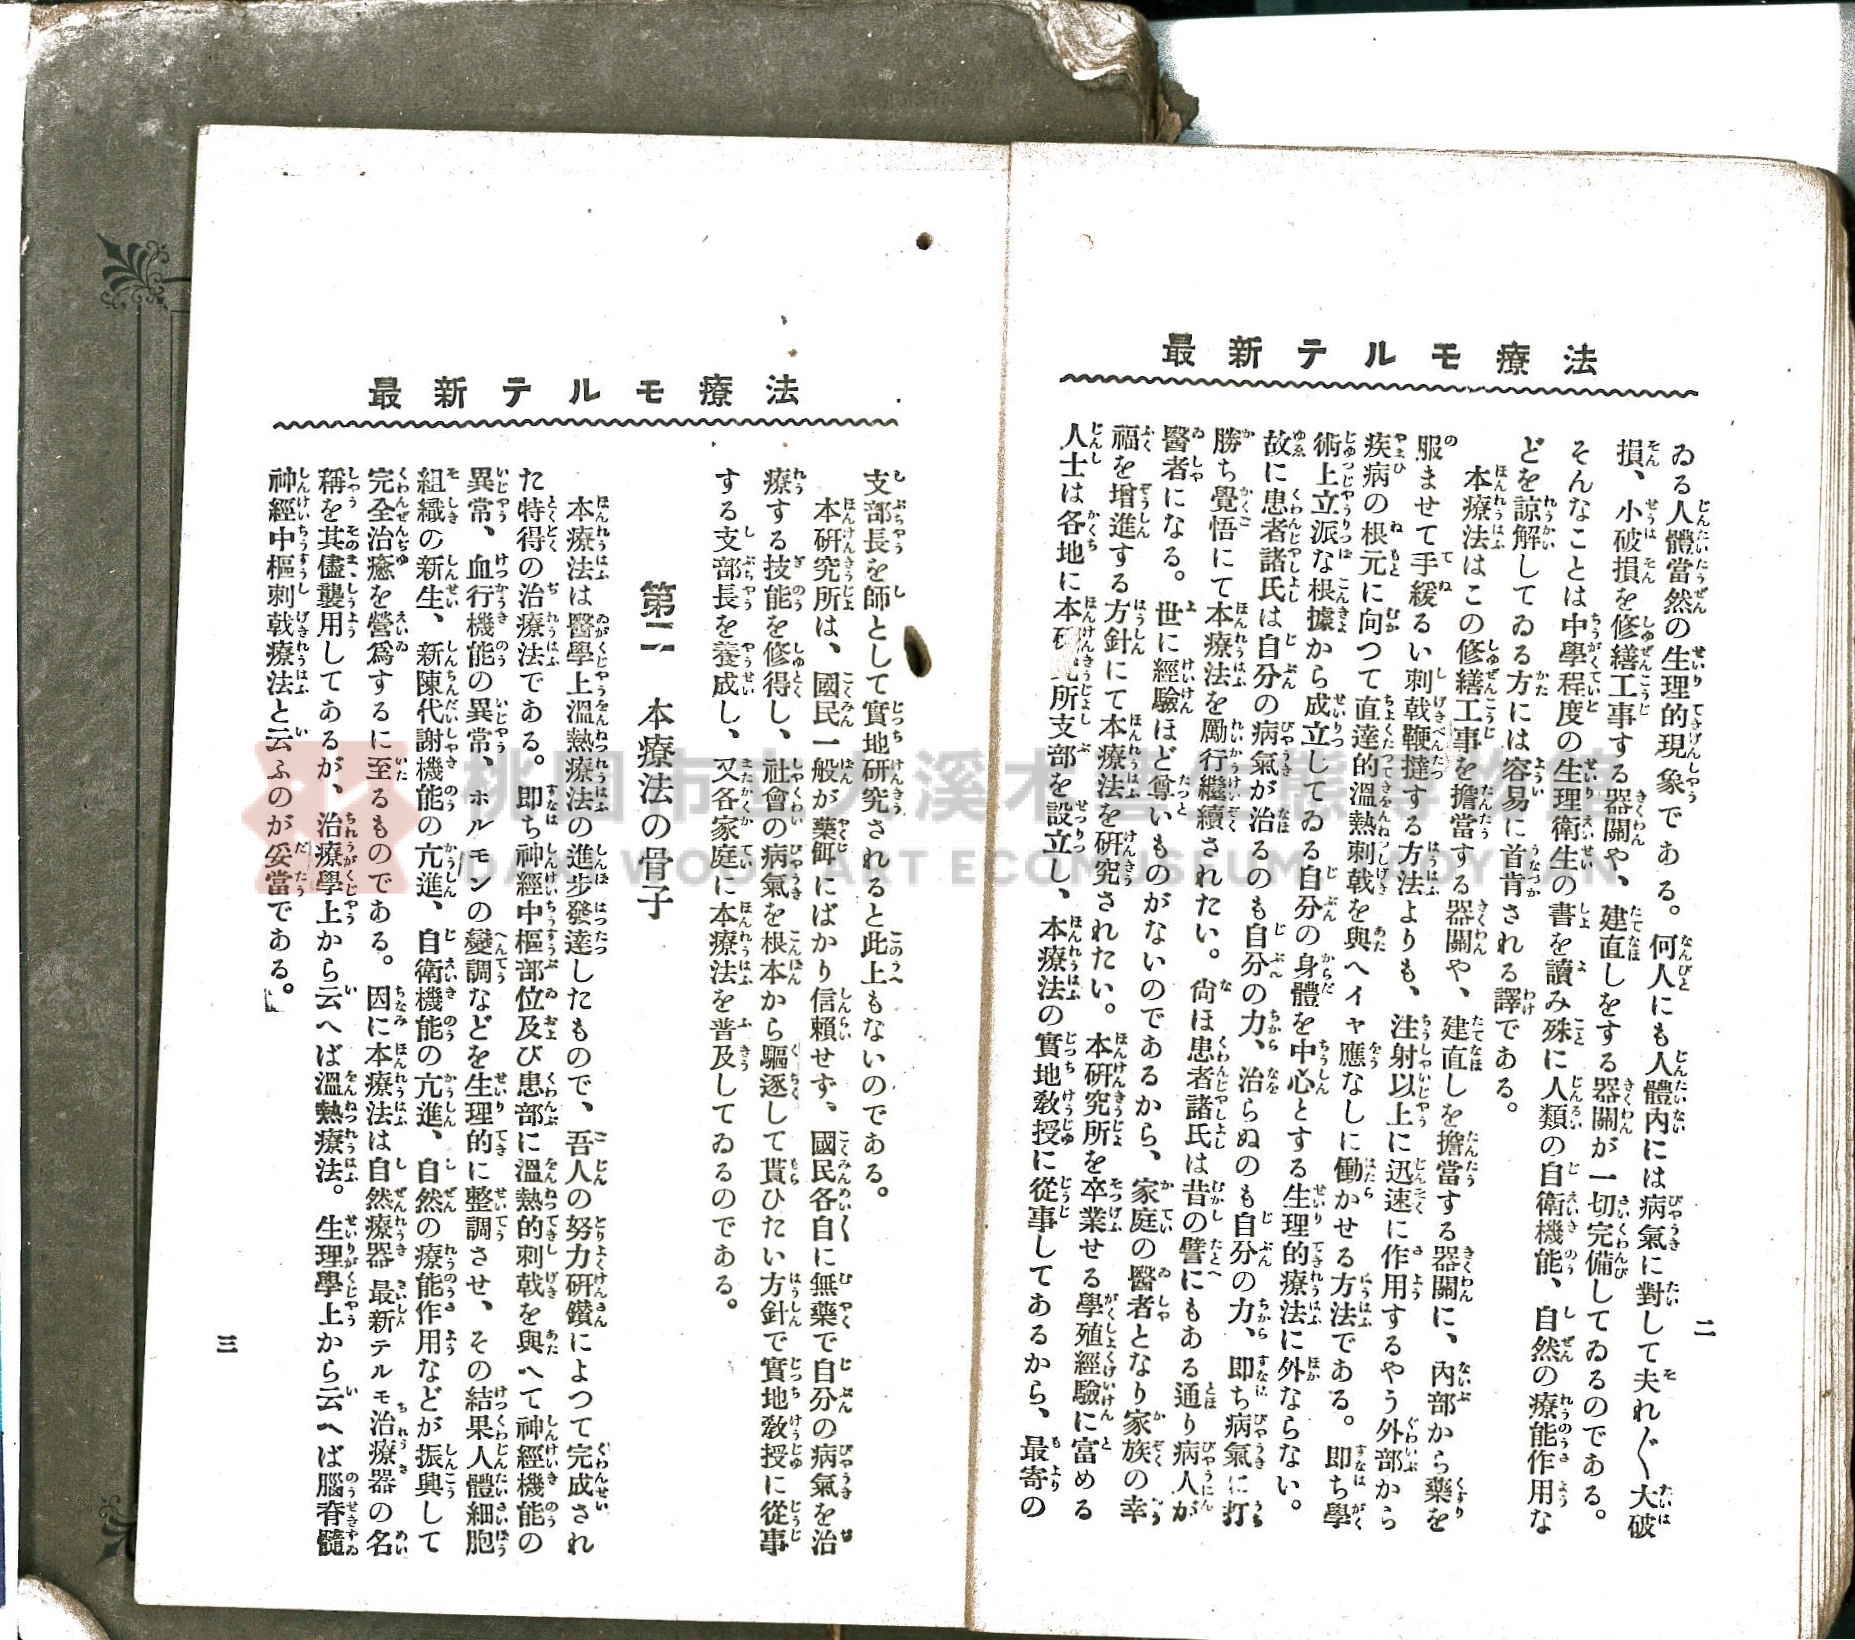 最新テルモ療法
二
ゐる人體當然の生理的現象である。何人にも人體内には病氣に對して夫れ〲大破
損、小破損を修繕工事する器關や、建直しをする器關が一切完備してゐるのである。
そんなことは中學程度の生理衛生の書を讀み殊に人類の自衛機能、自然の療能作用な
どを諒解してゐる方には容易に首肯される譯である。
本療法はこの修繕工事を擔當する器關や、建直しを擔當する器關に、内部から藥を
服ませて手緩るい刺戟鞭撻する方法よりも、注射以上に迅速に作用するやう外部から
疾病の根元に向つて直達的溫熱刺戟を與へイャ應なしに働かせる方法である。即ち學
術上立派な根據から成立してゐる自分の身體を中心とする生理的療法に外ならない。
故に患者諸氏は自分の病氣が治るのも自分の力、治らぬのも自分の力、即ち病氣に打
勝ち覺悟にて本療法を勵行繼續されたい。尙ほ患者諸氏は昔の譬にもある通り病人が
醫者になる。世に經驗ほど尊いものがないのであるから、家庭の醫者となり家族の幸
福を增進する方針にて本療法を研究されたい。本研究所を卒業せる學殖經驗に富める
人士は各地に本研究所支部を設立し、本療法の實地敎授に從事してあるから、最寄の
最新テルモ療法
支部長を師として實地研究されると此上もないのである。
本研究所は、國民一般が藥餌にばかり信賴せず、國民各自に無藥で自分の病氣を治
療する技能を修得し、社會の病氣を根本から驅逐して貰ひたい方針で實地敎授に從事
する支部長を養成し、又各家庭に本療法を普及してゐるのである。
第二　本療法の骨子
本療法は醫學上溫熱療法の進步發達したもので、吾人の努力研鑽によつて完成され
た特得の治療法である。即ち神經中樞部位及び患部に溫熱的刺戟を與へて神經機能の
異常、血行機能の異常、ホルモンの變調などを生理的に整調させ、その結果人體細胞
組織の新生、新陳代謝機能の亢進、自衛機能の亢進、自然の療能作用などが振興して
完全治癒を營爲するに至るものである。因に本療法は自然療器最新テルモ治療器の名
稱を其儘襲用してあるが、治療學上から云へば溫熱療法。生理學上から云へば腦脊髓
神經中樞刺戟療法と云ふのが妥當である。
三
桃園市立大溪木藝生態博物館
DAXI WOOD ART ECOMUSEUM, TAOYUAN